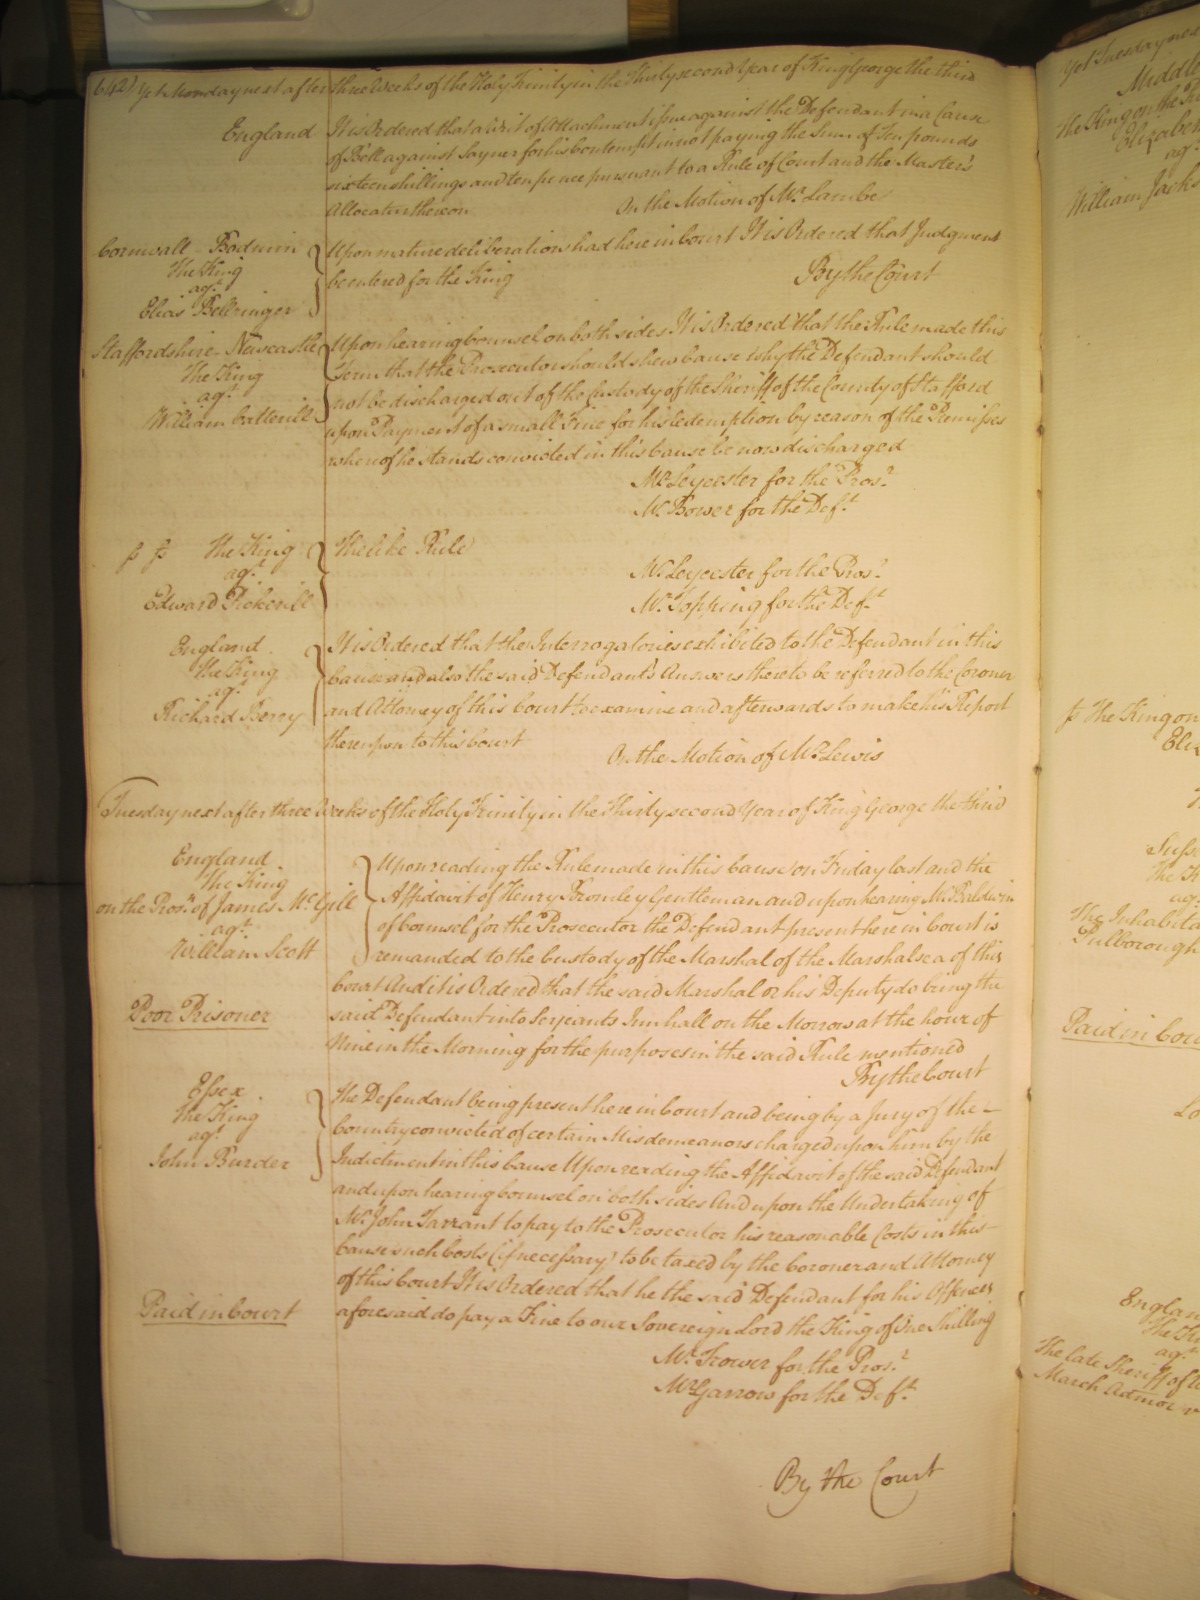 642) Yet Monday next after three Weeks of the Holy Trinity in the Thirty second Year of King George the third
England It is Ordered that a Writ of Attachment issue against the Defendant in a Cause
of Bell against Sayner for his Contempt in not paying the Sum of Ten pounds
sixteen shillings and ten pence pursuant to a Rule of Court and the Master's
Allocatur thereon On the Motion of Mr. Lambe
Cornwall - Bodmin
The King
agt.
Elias Bellringer
Upon mature deliberation had here in Court It is Ordered that Judgment
be entered for the King
By the Court
Staffordshire - Newcastle
The King
agt.
William Catterill
Upon hearing Counsel on both sides It is Ordered that the Rule made this
Term that the Prosecutor should shew Cause why the Defendant should
not be discharged out of the Custody of the Sheriff of the County of Stafford
upon Payment of a small Fine for his Redemption by reason of the Premisses
whereof he stands convicted in this Cause be now discharged
Mr. Leycester for the Prosr.
Mr. Bower for the Deft.
The King
agt.
Edward Pickerill
The like Rule
Mr. Leycester for the Prosr.
Mr. Topping for the Deft.
England
The King
agt.
Richard Berry
It is Ordered that the Interrogatories exhibited to the Defendant in this
Cause and also the said Defendant's Answers thereto be referred to the Coroner
and Attorney of this Court to examine and afterwards to make his Report
thereupon to this Court
On the Motion of Mr. Lewis
Tuesday next after three Weeks of the Holy Trinity in the Thirty second Year of King George the third
England
The King
on the Prosn. of James McGill
agt.
William Scott
Poor Prisoner
Upon reading the Rule made in this Cause on Friday last and the
Affidavit of Henry Bromley Gentleman and upon hearing Mr. Baldwin
of Counsel for the Prosecutor the Defendant present here in Court is
remanded to the Custody of the Marshal of the Marshalsea of this
Court And it is Ordered that the said Marshal or his Deputy do bring the
said Defendant into Serjeants Inn hall on the Morrow at the hour of
Nine in the Morning for the purposes in the said Rule mentioned
By the Court
Essex
The King
agt.
John Burder
Paid in Court
The Defendant being present here in Court and being by a Jury of the
Country convicted of certain Misdemeanors charged upon him by the
Indictment in this Cause Upon reading the Affidavit of the said Defendant
and upon hearing Counsel on both sides And upon the Undertaking of
Mr. John Tarrant to pay to the Prosecutor his reasonable Costs in this
Cause such Costs (if necessary) to be taxed by the Coroner and Attorney
of this Court It is Ordered that he the said Defendant for his Offences
aforesaid do pay a Fine to our Sovereign Lord the King of One Shilling
Mr. Trower for the Prosr.
Mr. Garrow for the Deft.
By the Court
Yet Tuesday nex
Middle
The King on the
Elizabe
agt.
William Jacks
The King on
Suss
agt.
The Inhabita
Pulborough
Paid in Cou
Lo
Englan
The K
agt.
The late Sheriff of
March